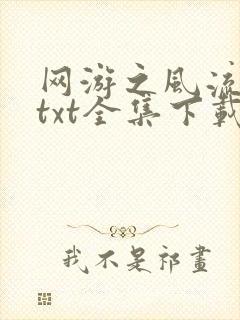 网游之风流
txt全集下载
我不是祁画